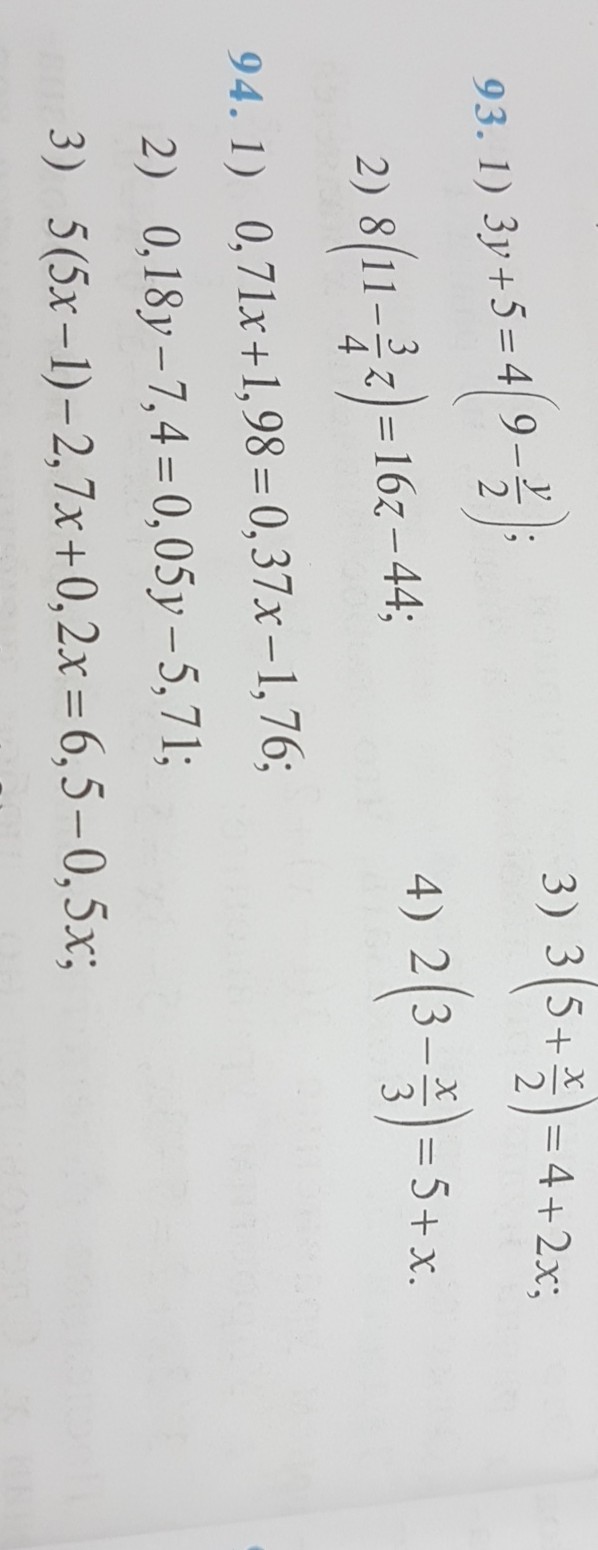 93. 1) 3y+5=4(9-y/2); 3) 3(5+x/2)=4+2x;
2) 8(11-3/4 z)=16z-44; 4) 2(3-x/3)=5+x.
94. 1) 0,71x+1,98=0,37x-1,76;
2) 0,18y-7,4=0,05y-5,71;
3) 5(5x-1)-2,7x+0,2x=6,5-0,5x;